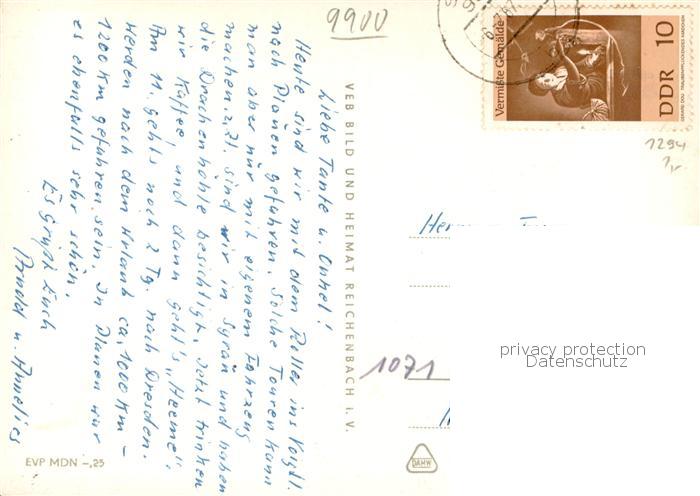 9900
Liebe Tante u. Onkel!
Heute sind wir mit dem Roller ins Vogtl.
nach Plauen gefahren. Solche Touren kann
man aber nur mit eigenem Fahrzeug
machen. Z.Zt. sind wir in Syrau und haben
die Drachenhöhle besichtigt. Jetzt trinken
wir Kaffee! und dann geht's „Heeme".
Am 11. gehts noch 2 Tg. nach Dresden.
Werden nach dem Urlaub ca. 1000 Km -
1200 Km gefahren sein. In Plauen war
es ebenfalls sehr schön.
Es grüßt Euch
Arnold u. Annelies
EVP MDN -,25
VEB BILD UND HEIMAT REICHENBACH I. V.
Vermißte Gemälde
DDR 10
GERARD DOU TRAUBENPFLÜCKENDES MÄDCHEN
1294
1071
DAMW
privacy protection
Datenschutz